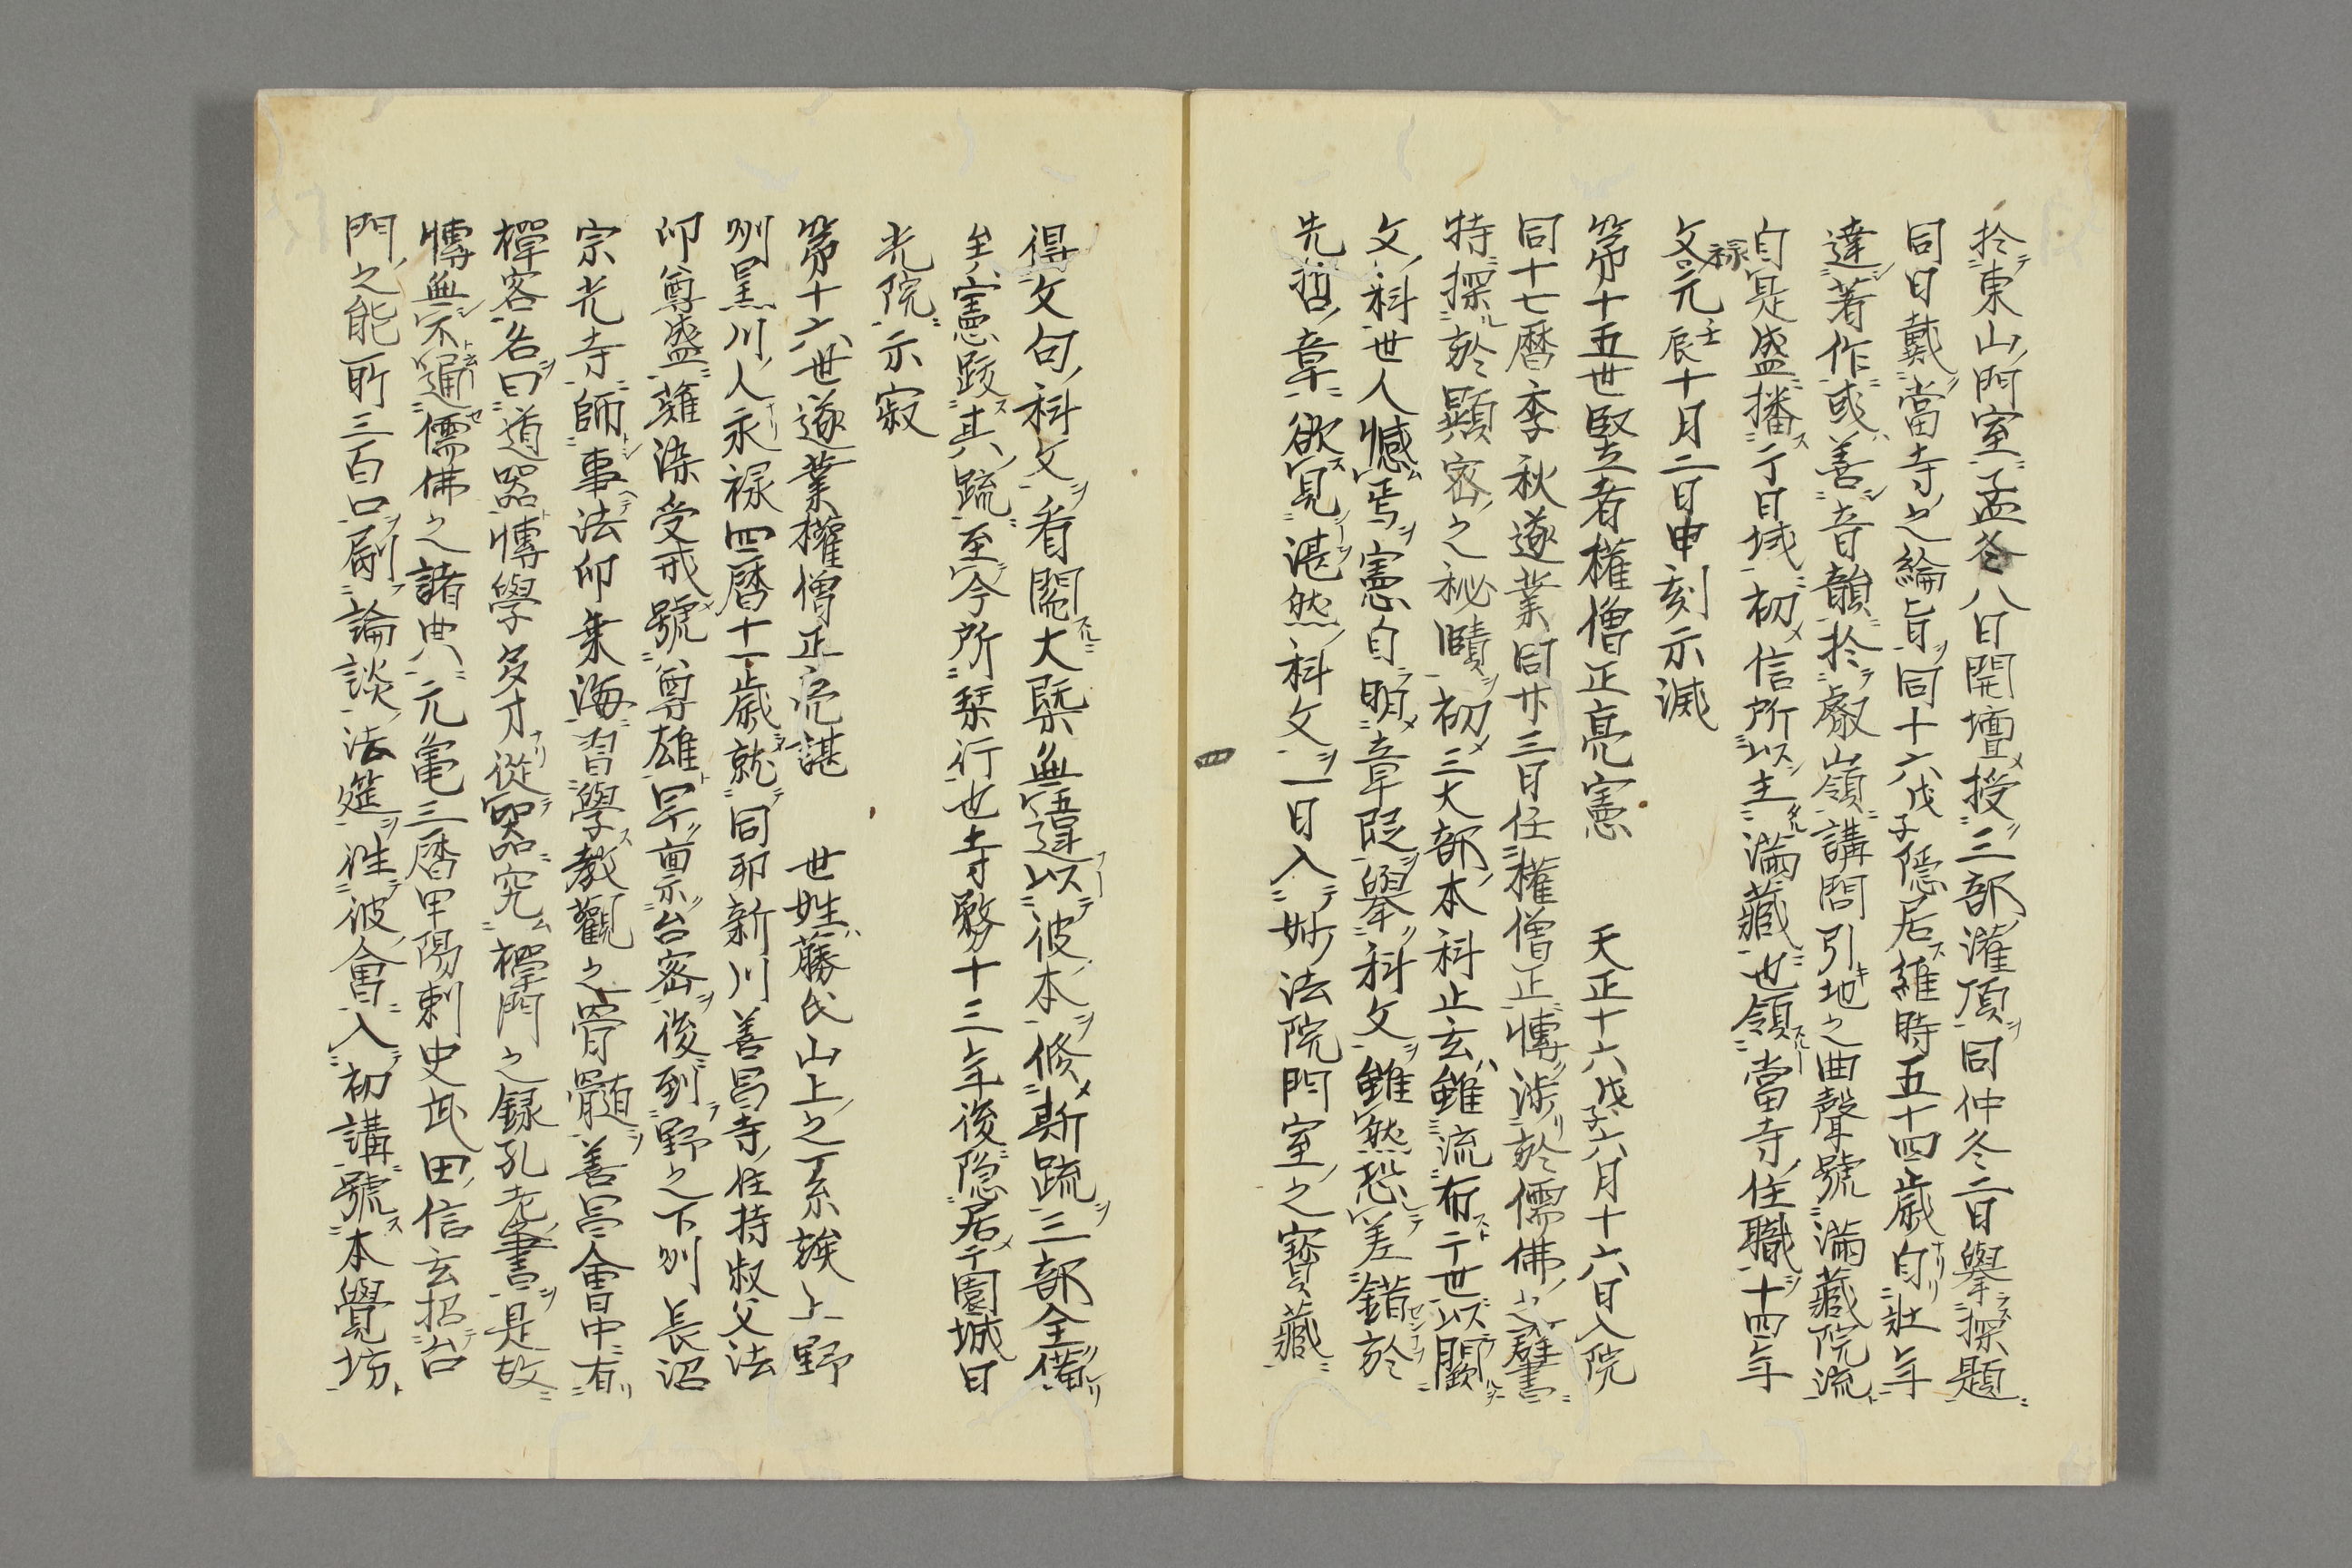 於東山門室孟冬八日開壇授三部灌頂同仲冬二日擧探題
同日戴當寺之綸旨同十六戊子隱居維時五十四歳自壯年
達著作或善音韻於叡山嶺講問引地之曲聲號滿藏院流
自是盛播于日域初信所以主滿藏世領當寺住職十四年
文禄元壬辰十月二日申刻示滅
第十五世竪者權僧正亮憲 天正十六戊子六月十六日入院
同十七曆季秋遂業同廿三日任權僧正博渉於儒佛之群書
特探於顯密之秘賾初三大部本科止玄雖流布于世以闕
文科世人憾焉憲自明章段擧科文雖然恐差錯於
先哲章欲見湛然科文一日入妙法院門室之寶藏
得文句科文看閲大槩無違以彼本修斯䟽三部全備
矣憲跋其䟽至今所栞行也寺務十三年後隱居于園城日
光院示寂
第十六世遂業權僧正亮諶 世姓藤氏山上之一系族上野
刕黒川人永禄四曆十一歳就同邪新川善昌寺住持叔父法
印尊盛薙染受戒號尊雄早稟台密後到野之下刕長沼
宗光寺師事法印乗海習學教觀之骨髓善昌會中有
禪客名曰道器博學多才從器究禪門之録孔老書是故
博無不通儒佛之諸典元亀三曆甲陽刺史武田信玄招台
門之能所三百口嗣論談法筵往彼會入初講號本覺坊